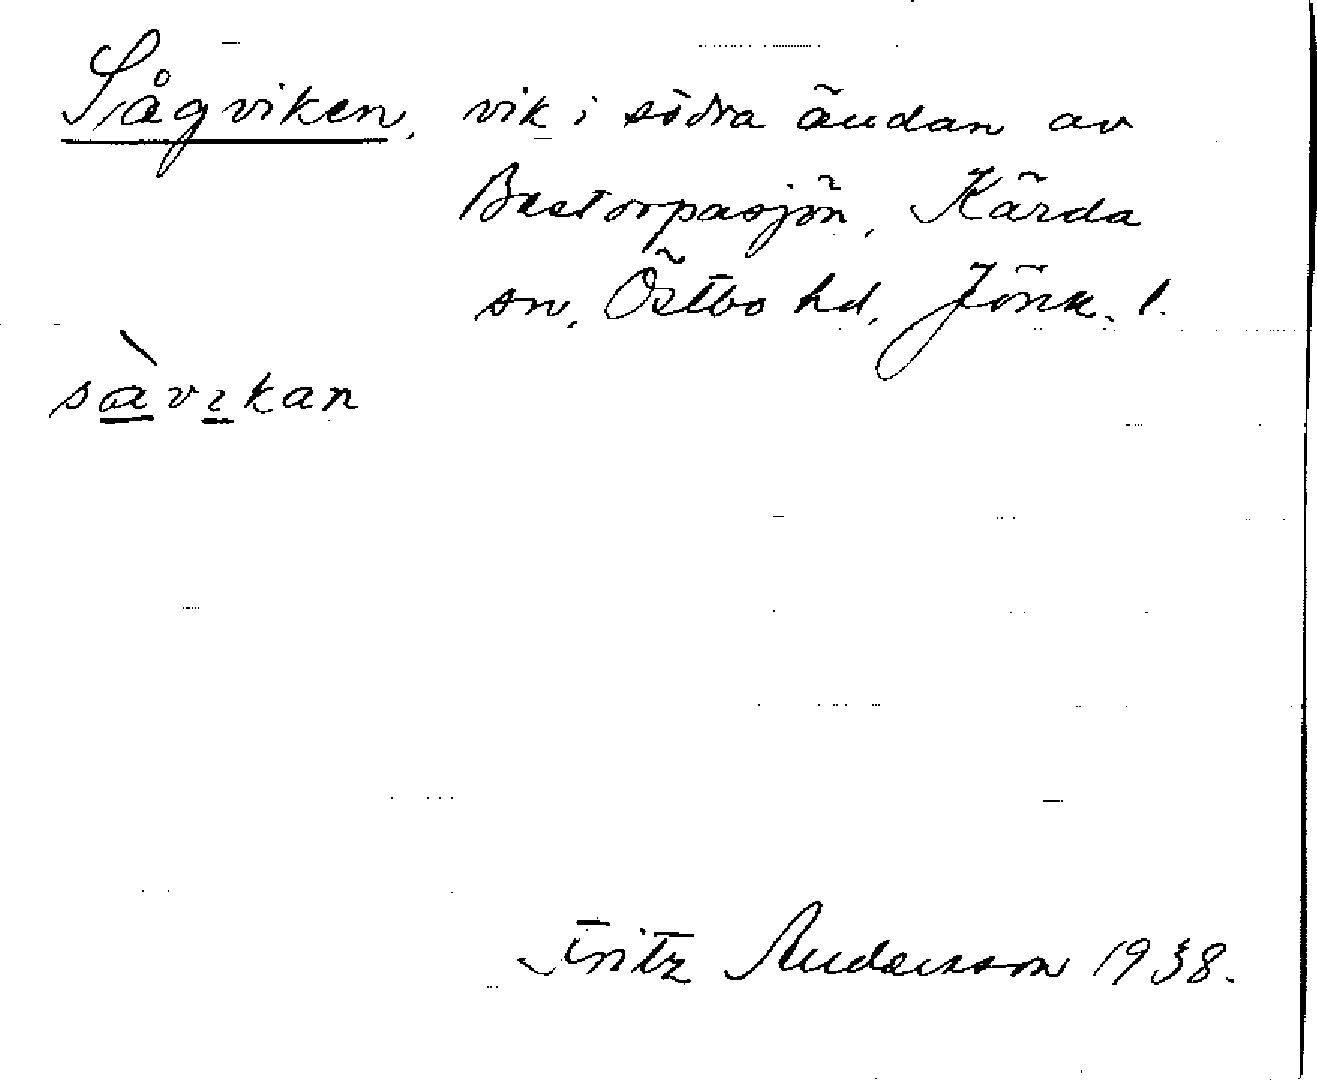 Sågviken, vik i södra ändan av
Bastorpasjön, Kärda
sn, Östbo hd, Jönk. l.
sàvikan
Fritz Andersson 1938.